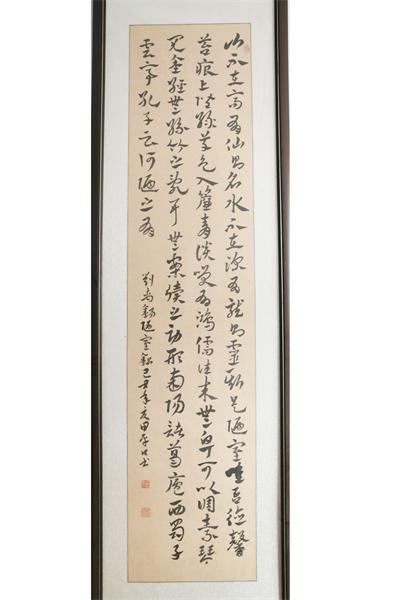 山不在高有仙則名水不在深有龍則靈斯是陋室唯吾德馨
苔痕上階綠草色入簾青談笑有鴻儒往來無白丁可以調素琴
閱金經無絲竹之亂耳無案牘之勞形南陽諸葛廬西蜀子
雲亭孔子云何陋之有
劉禹錫陋室銘己丑年